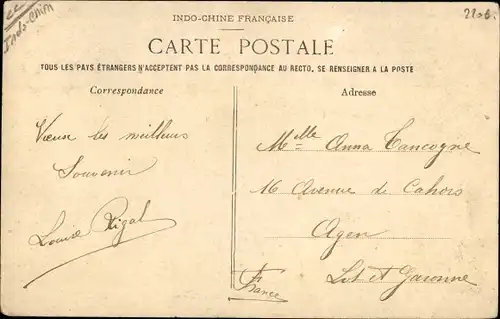 Indo-Chine
2206.
INDO-CHINE FRANÇAISE
CARTE POSTALE
TOUS LES PAYS ÉTRANGERS N'ACCEPTENT PAS LA CORRESPONDANCE AU RECTO. SE RENSEIGNER A LA POSTE
Correspondance
Vœux les meilleurs
Souvenir
Louise Rigal
Adresse
Melle Anna Tancogne
16 Avenue de Cahors
Agen
Lot et Garonne
France